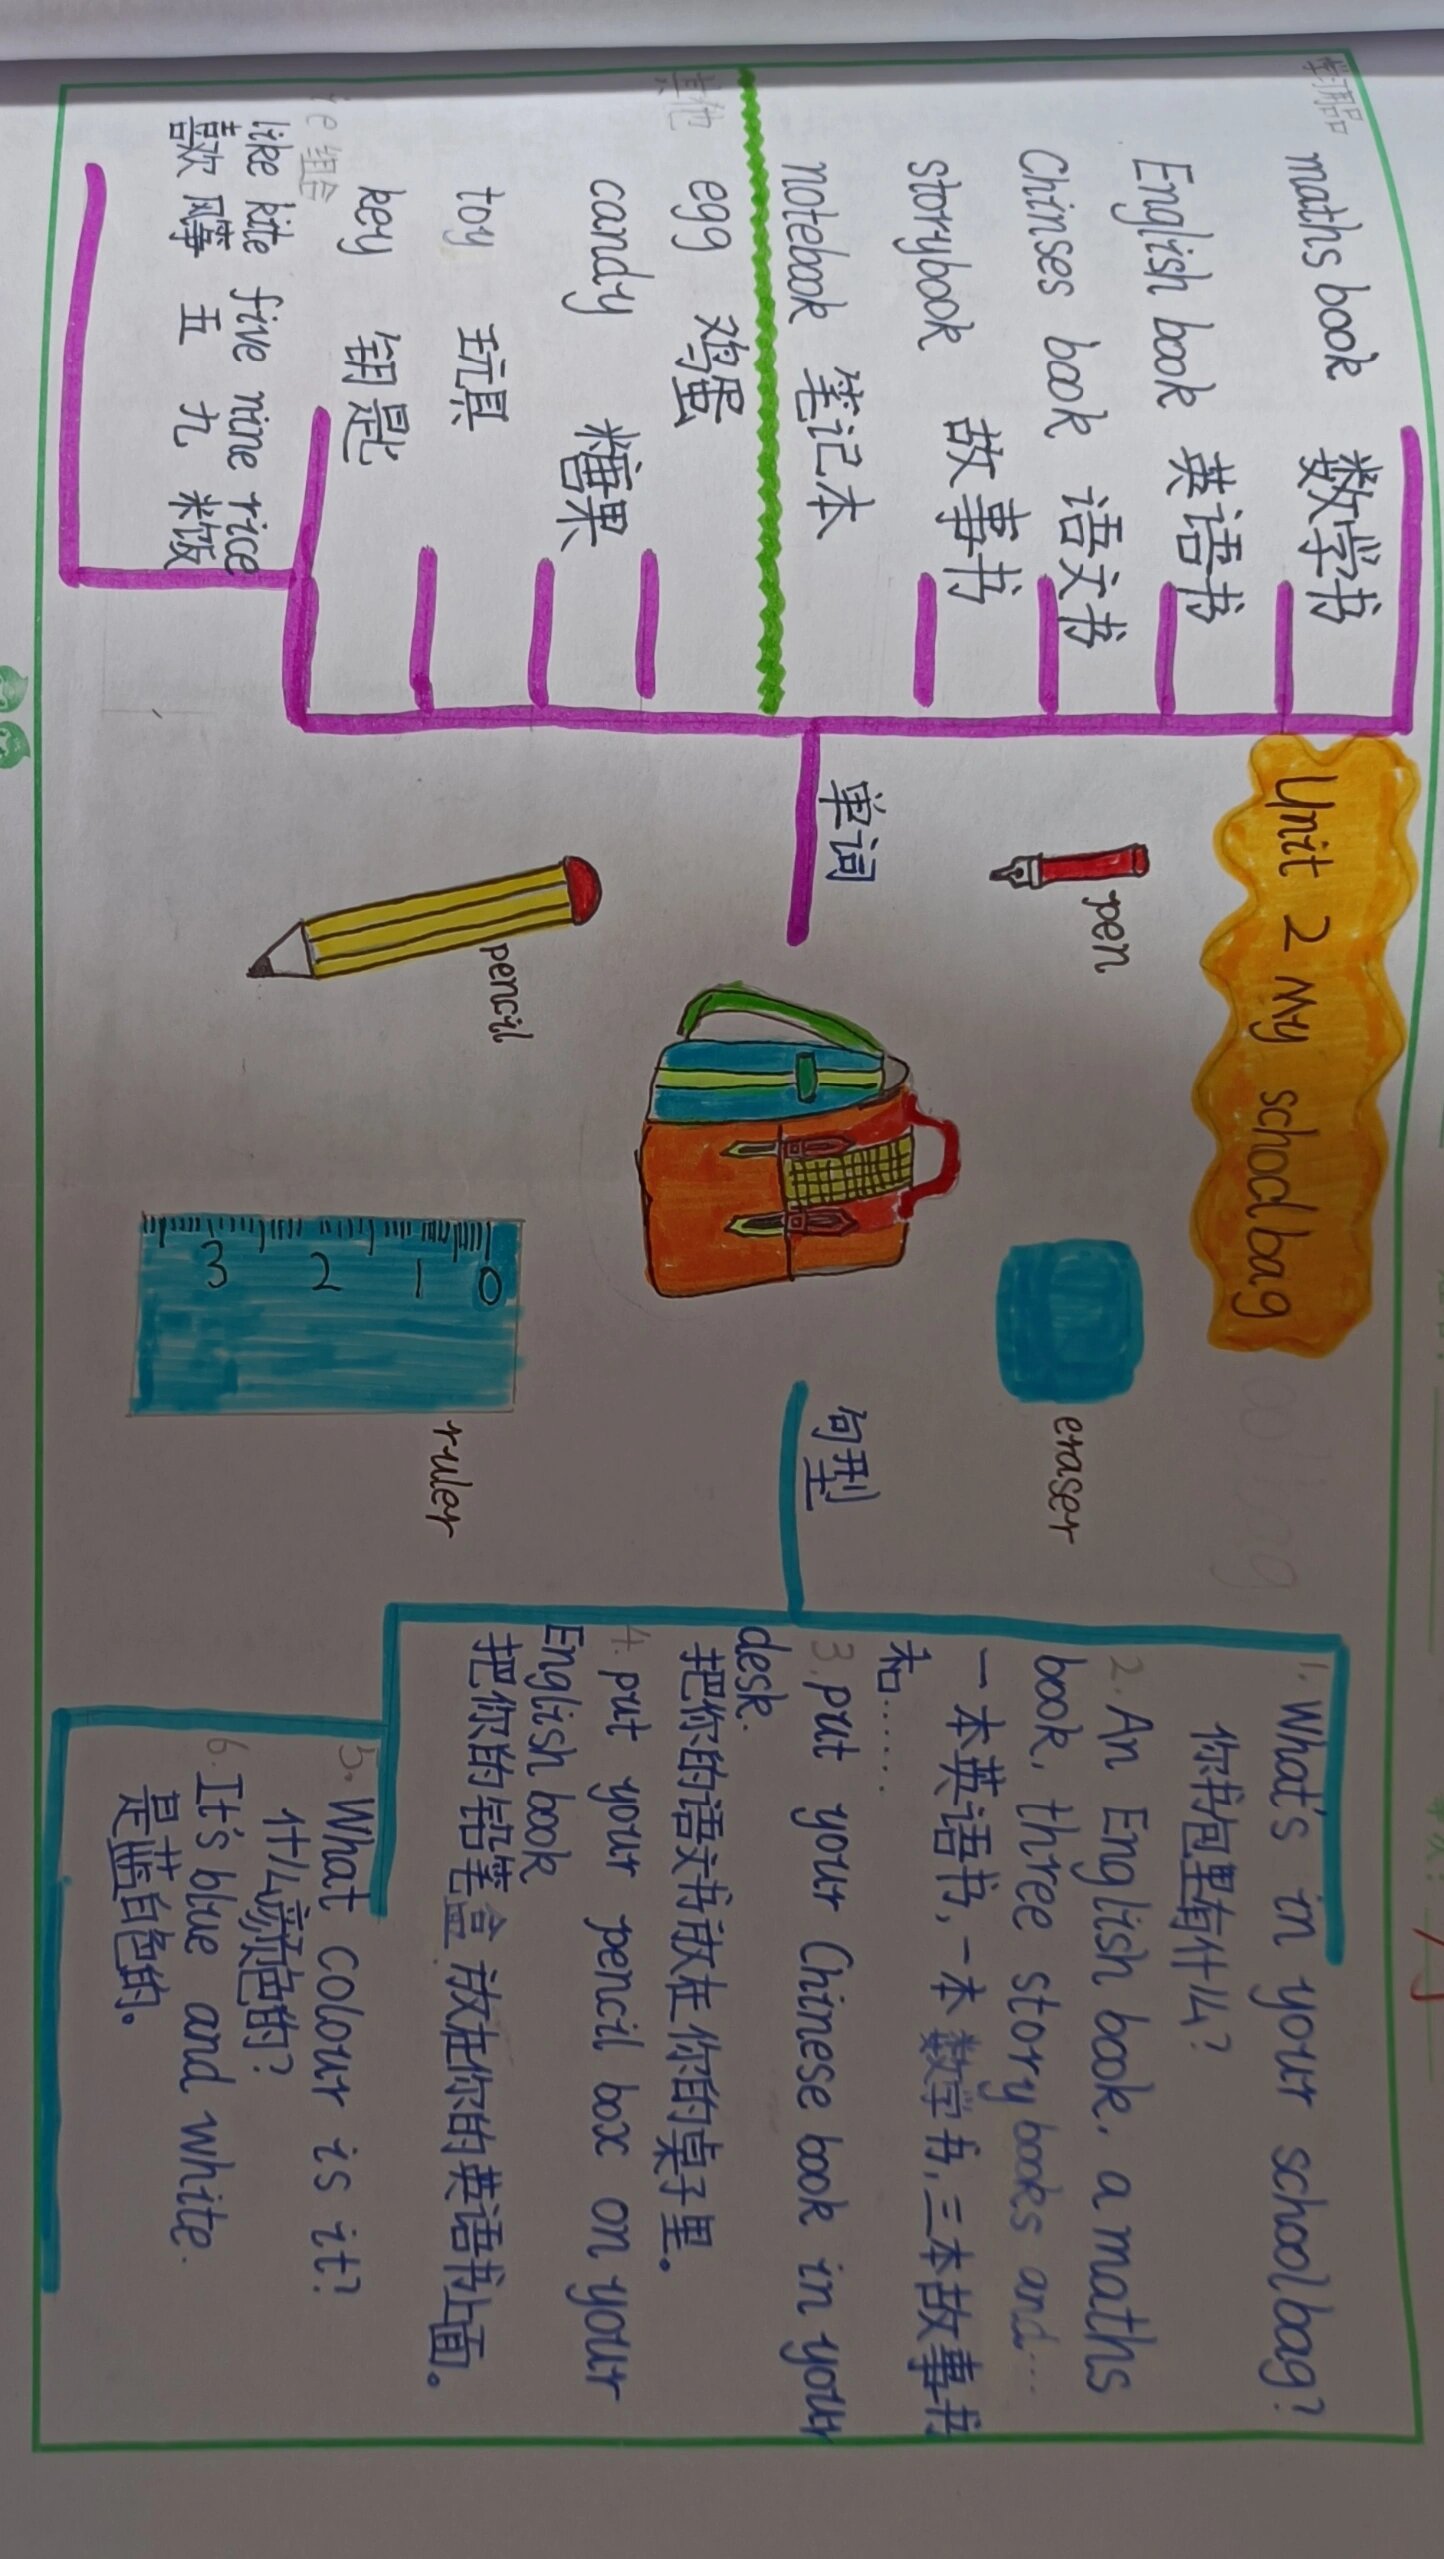 Unit 2 My schoolbag
学习用品
maths book 数学书
English book 英语书
Chinses book 语文书
storybook 故事书
notebook 笔记本
其他
egg 鸡蛋
candy 糖果
toy 玩具
key 钥匙
i-e组合
like kite five nine rice
喜欢 风筝 五 九 米饭
单词
pen
pencil
eraser
ruler
0 1 2 3
句型
1. What's in your schoolbag?
你书包里有什么?
2. An English book, a maths
book, three storybooks and...
一本英语书,一本数学书,三本故事书
和……
3. put your Chinese book in your
desk.
把你的语文书放在你的桌子里。
4. put your pencil box on your
English book
把你的铅笔盒放在你的英语书上面。
5. What colour is it?
什么颜色的?
6. It's blue and white.
是蓝白色的。